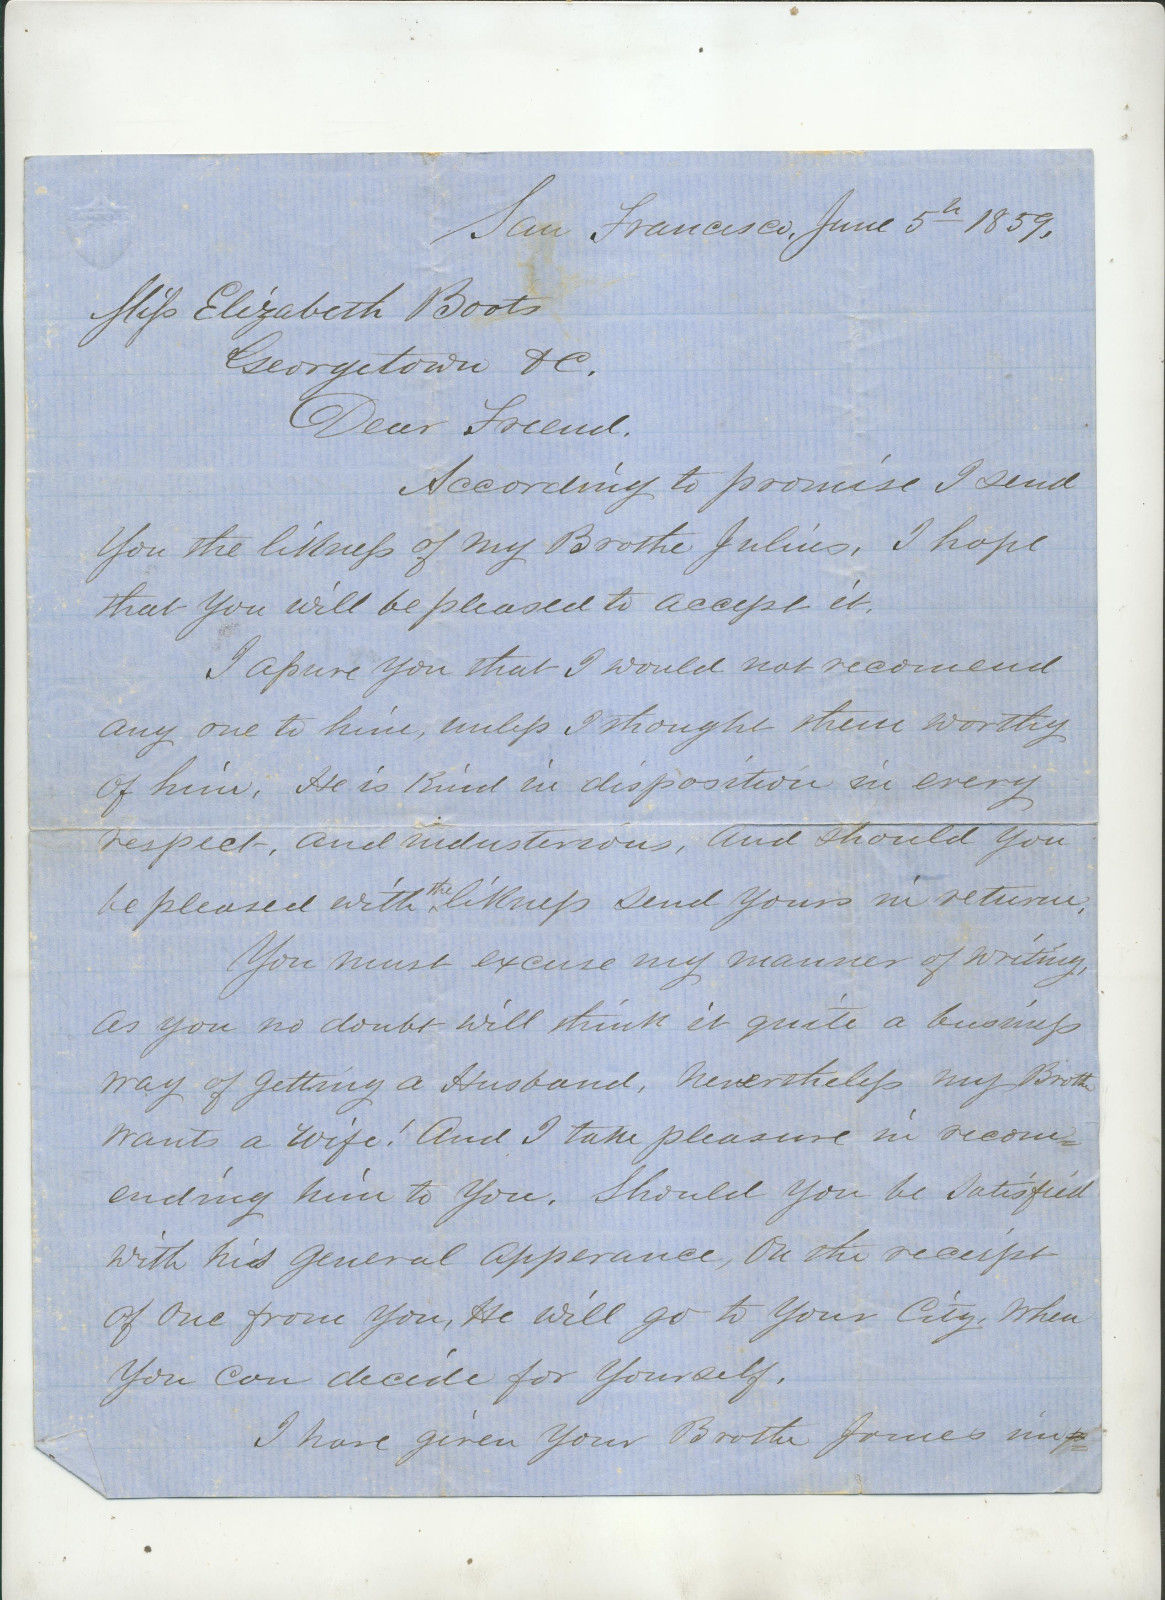 San Francisco, June 5th 1859.
Miss Elizabeth Boots
Georgetown DC.
Dear Friend.
According to promise I send
You the likness of my Brothe Julius, I hope
that You will be pleased to accept it.
I assure you that I would not recomend
any one to him, unless I thought them worthy
of him. He is Kind in disposition in every
respect, and industerious, and should You
be pleased with the likness send Yours in return.
You must excuse my manner of writing,
as you no doubt will think it quite a business
way of getting a Husband, nevertheless my Brothe
wants a Wife! And I take pleasure in recom=
ending him to You. Should You be Satisfied
with his general apperance, On the receipt
of One from You, He will go to Your City, when
You can decide for Yourself.
I have given Your Brothe James